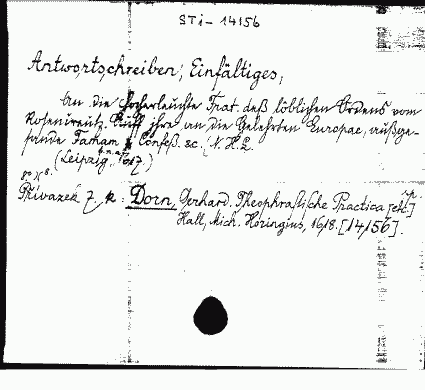 STi - 14156
Antwortschreiben, Einfältiges,
An die Hocherleuchte Frat. deß löblichen Ordens vom
Rosencreutz. Auff jhre, an die Gelehrten Europae, außge-
sande Famam & Confeß. &c. N. H. L.
(Leipzig, 1617)
8°
Přívazek 7, k: Dorn, Gerhard. Theophrastische Practica [etc.]
Hall, Mich. Höringius, 1618. [14156].